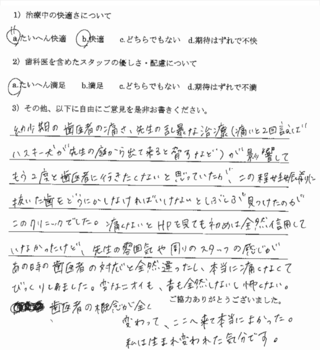 1）治療中の快適さについて
a.たいへん快適 b.快適 c.どちらでもない d.期待はずれで不快
2）歯科医を含めたスタッフの優しさ・配慮について
a.たいへん満足 b.満足 c.どちらでもない d.期待はずれで不満
3）その他、以下に自由にご意見を是非お書きください。
幼少期の歯医者の痛さ、先生の乱暴な治療（痛いと2回言えば
ハスキー犬が先生の顔から出て来ると脅すなど）が影響して
もう2度と歯医者に行きたくないと思っていたが、この程
抜いた歯をどうにかしなければいけないとしぶしぶ見つけたのが
このクリニックでした。痛くないとHPを見ても初めは全然信用して
いなかったけど、先生の雰囲気や周りのスタッフの感じが
あの時の歯医者の対応と全然違ったし、本当に痛くなくて
びっくりしました。変なニオイも、音も全然しないし怖くない。
ご協力ありがとうございました。
歯医者の概念が全く
変わって、ここへ来て本当によかった。
私は生まれ変われた気分です。